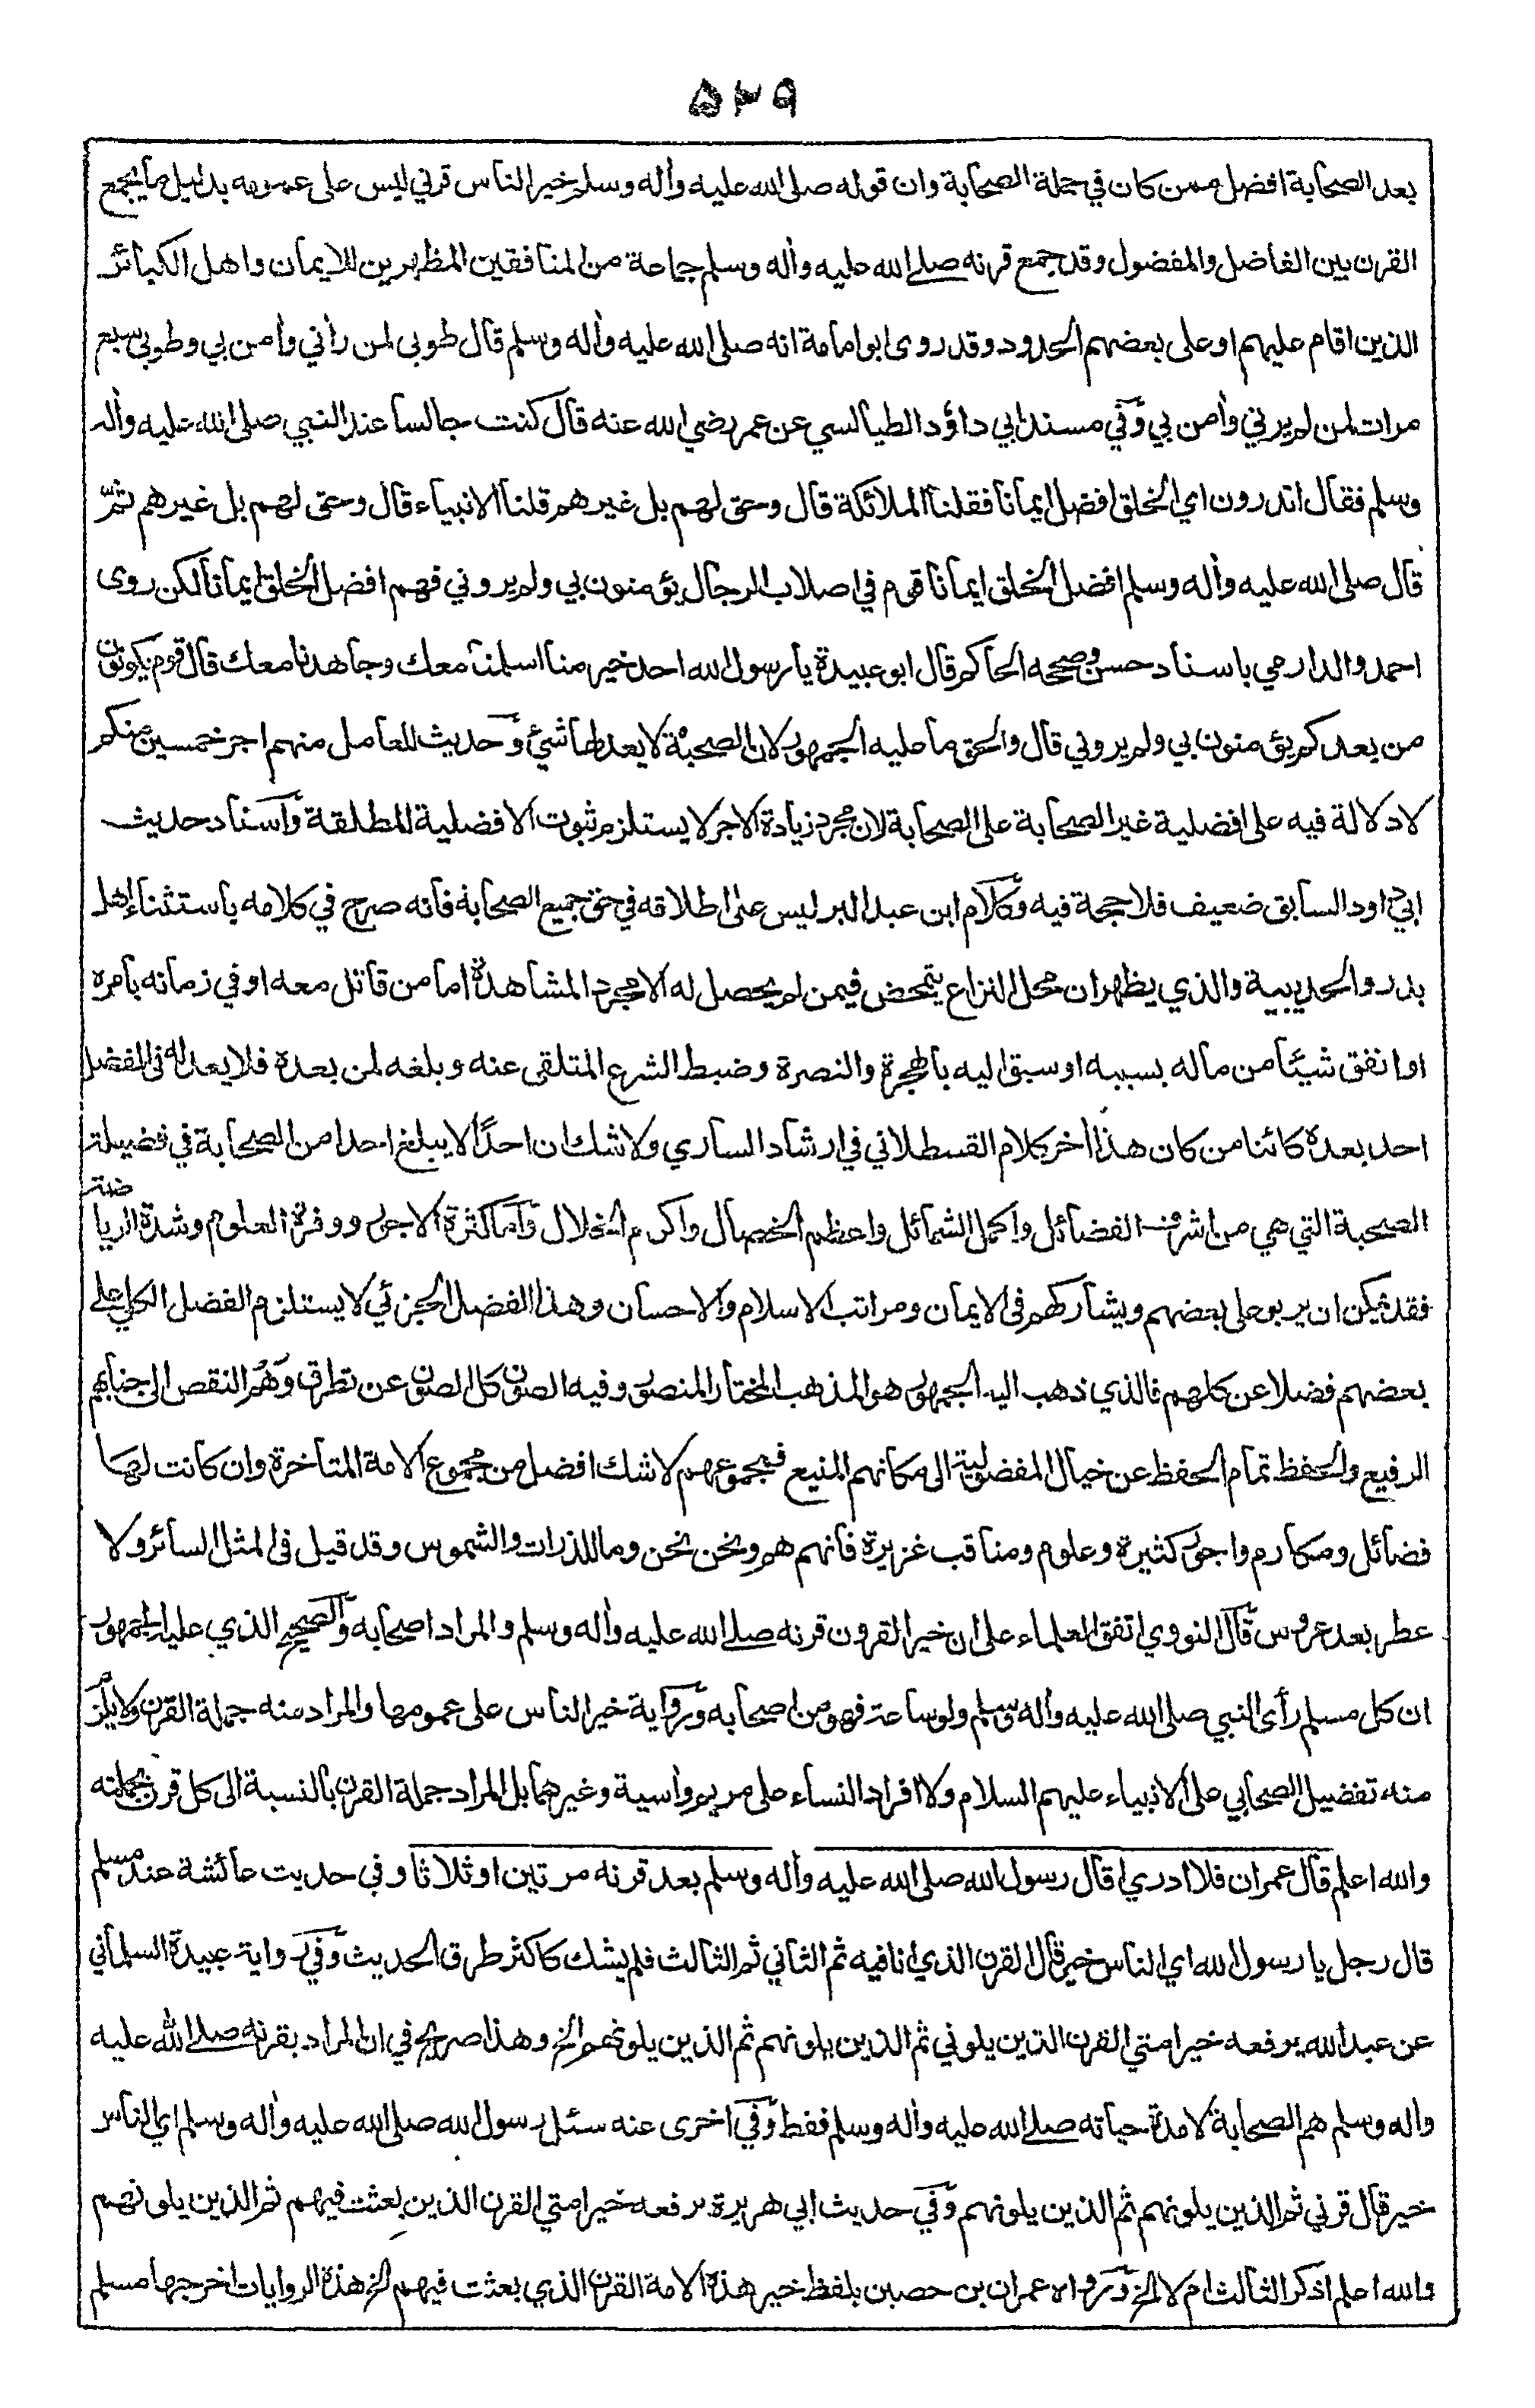 ۵۲۹
بعد الصحابة افضل ممن كان في جملة الصحابة وان قوله صلى الله عليه وأله وسلم خير الناس قرني ليس على عمومه بدليل ما يجمع
القرن بين الفاضل والمفضول وقد جمع قرنه صلى الله عليه وأله وسلم جماعة من المنافقين المظهرين للايمان واهل الكبائر
الذين اقام عليهم او على بعضهم الحدود وقد روى ابو امامة انه صلى الله عليه وأله وسلم قال طوبى لمن رأني وأمن بي وطوبى سبع
مرات لمن لم يرني وأمن بي وفي مسند ابي داؤد الطيالسي عن عمر رضي الله عنه قال كنت جالسا عند النبي صلى الله عليه وأله
وسلم فقال اتدرون اي الخلق افضل ايمانا فقلنا الملائكة قال وحق لهم بل غيرهم قلنا الانبياء قال وحق لهم بل غيرهم ثمّ
قال صلى الله عليه وأله وسلم افضل الخلق ايمانا قوم في اصلاب الرجال يؤمنون بي ولم يروني فهم افضل الخلق ايمانا لكن روى
احمد والدارمي باسناد حسن وصححه الحاكم قال ابو عبيدة يا رسول الله احد خير منا اسلمنا معك وجاهدنا معك قال قوم يكونون
من بعدكم يؤمنون بي ولم يروني قال والحق ما عليه الجمهور لان الصحبة لا يعدلها شئ وحديث للعامل منهم اجر خمسين منكم
لا دلالة فيه على افضلية غير الصحابة على الصحابة لان مجرد زيادة الاجر لا يستلزم ثبوت الافضلية المطلقة واسناد حديث
ابي داود السابق ضعيف فلا حجة فيه وكلام ابن عبد البر ليس على اطلاقه في حق جميع الصحابة فانه صرح في كلامه باستثناء اهل
بدر والحديبية والذي يظهر ان محل النزاع يتمحض فيمن لم يحصل له الا مجرد المشاهدة اما من قاتل معه او في زمانه بامره
او انفق شيئا من ماله بسببه او سبق اليه بالهجرة والنصرة وضبط الشرع المتلقى عنه وبلغه لمن بعده فلا يعدله فى الفضل
احد بعده كائنا من كان هذا أخر كلام القسطلاني في ارشاد الساري ولا شك ان احدًا لا يبلغ احدا من الصحابة في فضيلة
الصحبة التي هي من اشرف الفضائل واكمل الشمائل واعظم الخصال واكرم الخلال واما كثرة الاجور ووفرة العلوم وشدة الرياضة
فقد يمكن ان يربو على بعضهم ويشاركهم فى الايمان ومراتب الاسلام والاحسان وهذا الفضل الجزئي لا يستلزم الفضل الكلي على
بعضهم فضلا عن كلهم فالذي ذهب اليه الجمهور هو المذهب المختار المنصور وفيه الصون كل الصون عن تطرق وهم النقص الى جنابهم
الرفيع والحفظ تمام الحفظ عن خيال المفضولية الى مكانهم المنيع فمجموعهم لا شك افضل من مجموع الامة المتأخرة وان كانت لها
فضائل ومكارم واجور كثيرة وعلوم ومناقب غزيرة فانهم هم ونحن نحن وما للذرات والشموس وقد قيل فى المثل السائر ولا
عطر بعد عروس قال النووي اتفق العلماء على ان خير القرون قرنه صلى الله عليه وأله وسلم والمراد اصحابه والصحيح الذي عليه الجمهور
ان كل مسلم رأى النبي صلى الله عليه وأله وسلم ولو ساعة فهو من اصحابه ورواية خير الناس على عمومها والمراد منه جملة القرن ولا يلزم
منه تفضيل الصحابي على الانبياء عليهم السلام ولا افراد النساء على مريم وأسية وغيرهما بل المراد جملة القرن بالنسبة الى كل قرن بجملته
والله اعلم قال عمران فلا ادري اقال رسول الله صلى الله عليه وأله وسلم بعد قرنه مرتين او ثلاثا وفي حديث عائشة عند مسلم
قال رجل يا رسول الله اي الناس خير قال القرن الذي انا فيه ثم الثاني ثم الثالث فلم يشك كاكثر طرق الحديث وفي رواية عبيدة السلماني
عن عبد الله يرفعه خير امتي القرن الذين يلوني ثم الذين يلونهم ثم الذين يلونهم الخ وهذا صريح في ان المراد بقرنه صلى الله عليه
واله وسلم هم الصحابة لا مدة حياته صلى الله عليه وأله وسلم فقط وفي اخرى عنه سئل رسول الله صلى الله عليه وأله وسلم اي الناس
خير قال قرني ثم الذين يلونهم ثم الذين يلونهم وفي حديث ابي هريرة يرفعه خير امتي القرن الذين بعثت فيهم ثم الذين يلونهم
والله اعلم اذكر الثالث ام لا الخ ورواه عمران بن حصين بلفظ خير هذه الامة القرن الذي بعثت فيهم الخ هذه الروايات اخرجها مسلم